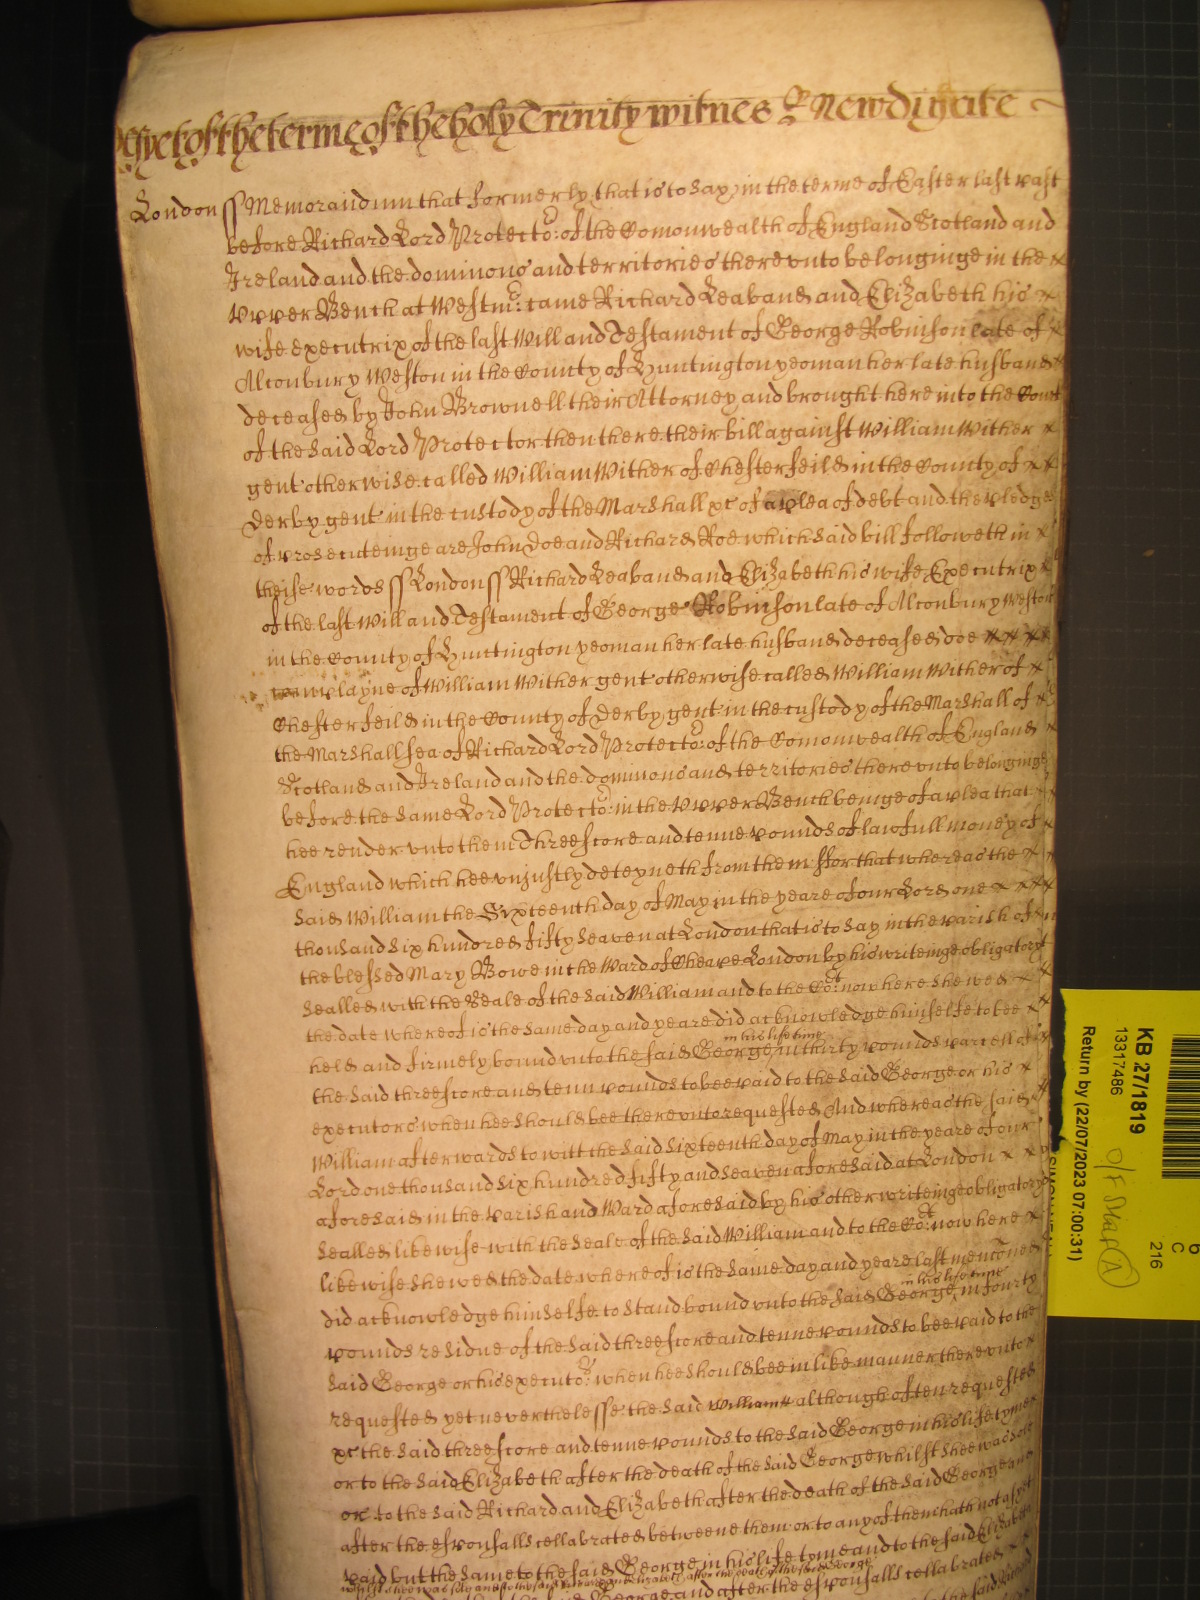 as yet of the terme of the holy Trinity witnes R Newdigate
London ss Memorandum that formerly that is to say in the terme of Easter last past
before Richard Lord Protector: of the Comonwealth of England Scotland and
Ireland and the dominons and territories therevnto belonginge in the x
Vpper Bench at Westmr: came Richard Leaband and Elizabeth his x
wife executrix of the last Will and Testament of George Robinson late of x
Alconbury Weston in the County of Huntington yeoman her late husband x
deceased by John Brownell their Attorney and brought here into the Court
of the said Lord Protector then there their bill against William Wither x
gent otherwise called William Wither of Chesterfeild in the County of x x
Derby gent in the custody of the Marshall &c of a plea of debt and the pledges
of prosecuteinge are John Doe and Richard Roe which said bill followeth in x
theise words ss London ss Richard Leaband and Elizabeth his wife Executrix x
of the last Will and Testament of George Robinson late of Alconbury Weston
in the County of Huntington yeoman her late husband deceased doe x x x x
complayne of William Wither gent otherwise called William Wither of x
Chesterfeild in the County of Derby gent in the custody of the Marshall of x
the Marshallsea of Richard Lord Protector: of the Comonwealth of England x
Scotland and Ireland and the dominons and territories therevnto belonginge
before the same Lord Protector: in the Vpper Bench beinge of a plea that x
hee render vnto them Threescore and tenne pounds of lawfull money of x
England which hee vnjustly deteyneth from them ffor that whereas the x x
said William the Sixteenth day of May in the yeare of our Lord one x x x x
thousand six hundred fifty seaven at London that is to say in the parish of
the blessed Mary Bowe in the Ward of Cheape London by his writeinge obligatory
sealled with the Seale of the said William and to the Cort: now here shewed x x
the date whereof is the same day and yeare did acknowledge himselfe to bee x x
in his life time
held and firmely bound vnto the said George in thirty pounds parcell of x
the said threescore and tenn pounds to bee paid to the said George or his x
executors when hee should bee therevnto requested And whereas the said x
William afterwards to witt the said sixteenth day of May in the yeare of our
Lord one thousand six hundred fifty and seaven aforesaid at London x x x
aforesaid in the parish and Ward aforesaid by his other writeinge obligatory
sealled likewise with the seale of the said William and to the Cort: now here x
likewise shewed the date whereof is the same day and yeare last mencõned
in his life time
did acknowledge himselfe to stand bound vnto the said George in fourty
pounds residue of the said threescore and tenne pounds to bee paid to the
said George or his executors: when hee should bee in like manner therevnto x
requested yet neverthelesse the said William although often requested
&c the said threescore and tenne pounds to the said George in his life tyme
or to the said Elizabeth after the death of the said George whilst shee was sole
or to the said Richard and Elizabeth after the death of the said George and
after the espousalls cellabrated betweene them or to any of them hath not as yet
paid but the same to the said George in his life tyme and to the said Elizabeth
whilst shee was sole and to the said Richard and Elizabeth after the death of the said George
George and after the espousalls cellabrated
KB 27/1819
13317486
O/F Staf A
Return by (22/07/2023 07:00:31)
6
C
216